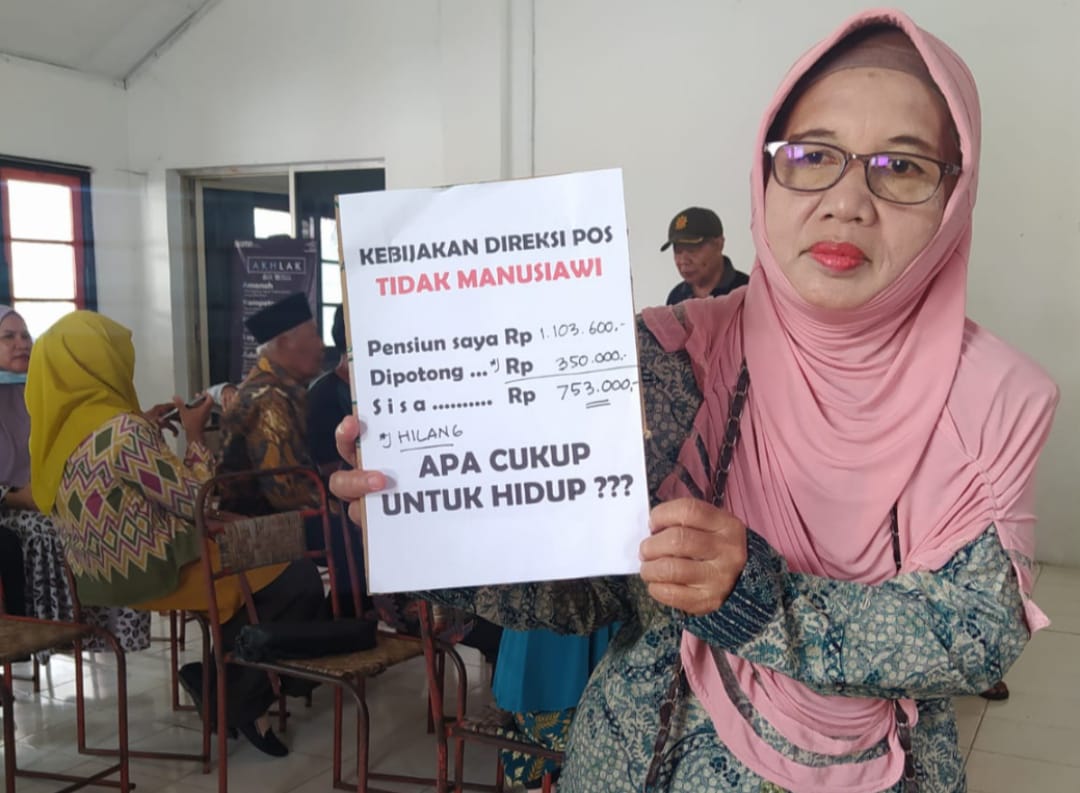 KEBIJAKAN DIREKSI POS
TIDAK MANUSIAWI
Pensiun saya Rp 1.103.600,-
Dipotong ...*) Rp 350.000,-
Sisa .......... Rp 753.000,-
*) HILANG
APA CUKUP
UNTUK HIDUP ???
AKHLAK
Amanah